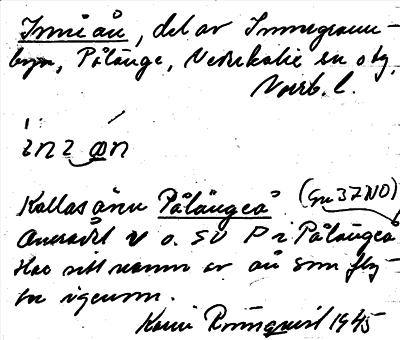 Inniån, del av Innegrann-
byn, Pålänge, Nederkalix sn o tg,
Norrb. l.
Kallas även Pålängeå (Gn 37 NO)
Området V o. SV P i Pålänge
Har sitt namn av ån som fly-
ter igenom.
Karin Rönnquist 1945